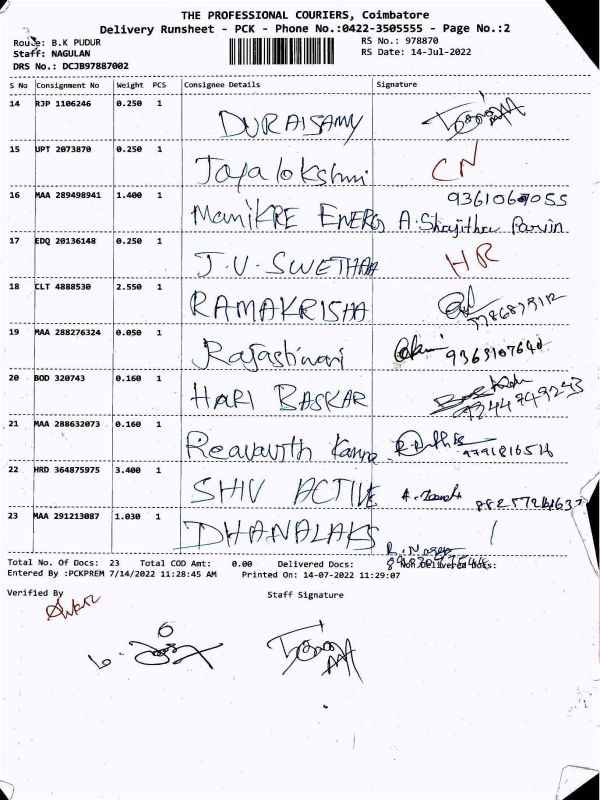 THE PROFESSIONAL COURIERS, Coimbatore
Delivery Runsheet - PCK - Phone No.:0422-3505555 - Page No.:2
Route: B.K PUDUR
RS No.: 978870
Staff: NAGULAN
RS Date: 14-Jul-2022
DRS No.: DCJB97887002
S No Consignment No Weight PCS Consignee Details Signature
14 RJP 1106246 0.250 1 DURAISAMY
15 UPT 2073870 0.250 1 Jayalokshmi CN
9361067055
16 MAA 289498941 1.400 1 MANIKRE ENERG A.Shajitha Parvin
17 EDQ 20136148 0.250 1 J.V.SWETHAA HR
18 CLT 4888530 2.550 1 RAMAKRISHA
19 MAA 288276324 0.050 1 Rajashwari
20 BOD 320743 0.160 1 HARI BASKAR
21 MAA 288632073 0.160 1
22 HRD 364875975 3.400 1 SHIV ACTIVE
23 MAA 291213087 1.030 1 DHANALAKS
Total No. Of Docs: 23 Total COD Amt: 0.00 Delivered Docs: Non Delivered Docs:
Entered By :PCKPREM 7/14/2022 11:28:45 AM Printed On: 14-07-2022 11:29:07
Verified By
Staff Signature